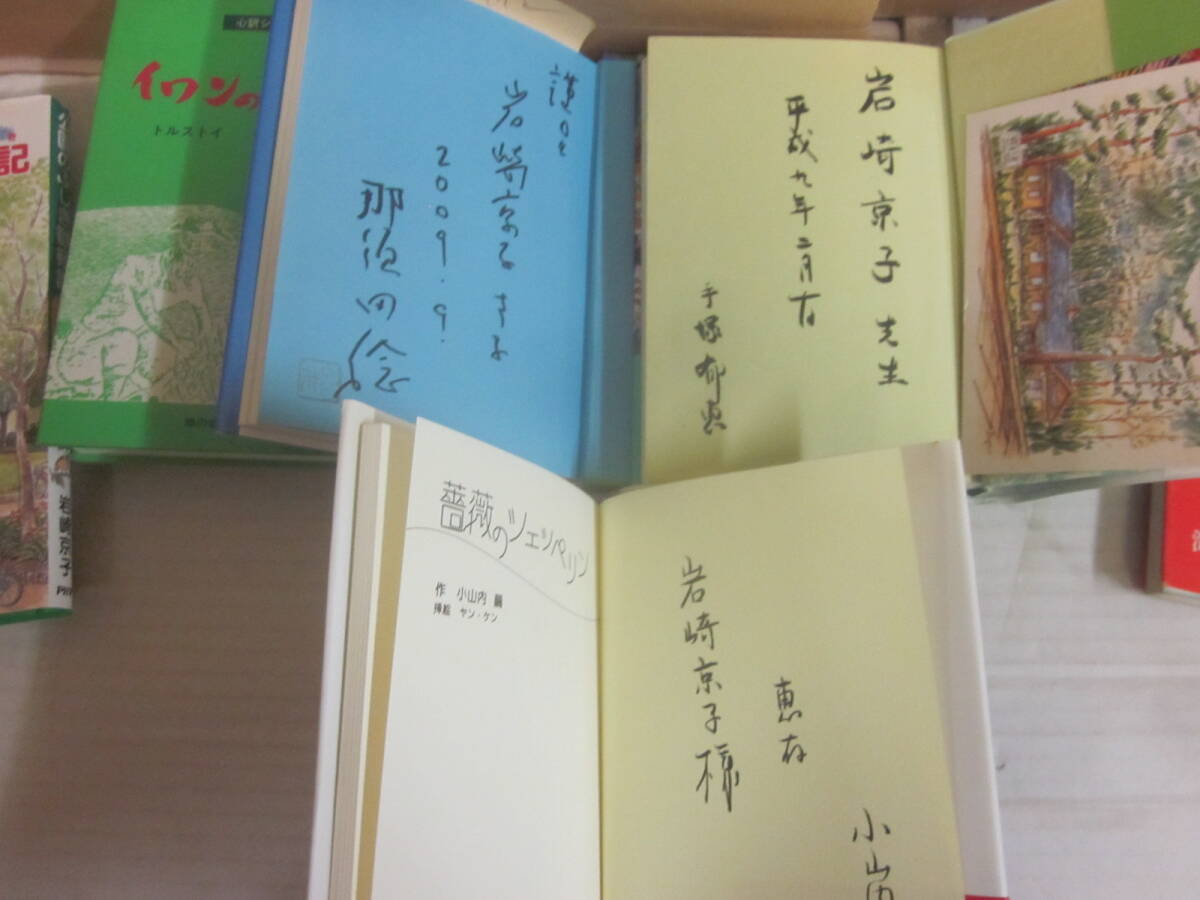 記
岩崎京子
イワンの
トルストイ
岩崎京子さま
2009.9.
那須田稔
岩崎京子先生
平成九年二月吉日
手塚郁恵
薔薇のツェッペリン
作 小山内 繭
挿絵 ヤン・ケン
岩崎京子様
恵存
小山内